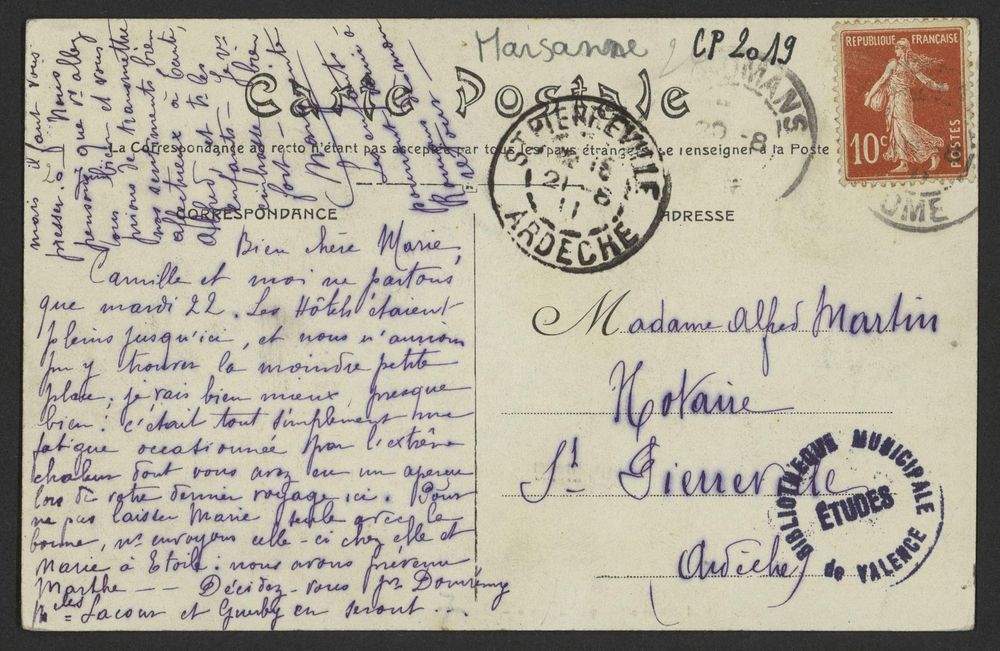 Marsanne
CP 2019
Carte Postale
La Correspondance au recto n'étant pas acceptée par tous les pays étrangers se renseigner à la Poste
CORRESPONDANCE
ADRESSE
REPUBLIQUE FRANÇAISE
10c
POSTES
ROMANS
DROME
ST PIERREVILLE
21 - 8
11
ARDECHE
Bien chère Marie,
Camille et moi ne partons
que mardi 22. Les Hôtels étaient
pleins jusqu'ici, et nous n'aurions
pu y trouver la moindre petite
place; je vais bien mieux, presque
bien; c'était tout simplement une
fatigue occasionnée par l'extrême
chaleur dont vous avez eu un aperçu
lors de votre dernier voyage ici. Pour
ne pas laisser Marie seule avec la
bonne, ns envoyons celle-ci chez elle et
Marie à Etoile: nous avons prévenu
Marthe -- Décidez-vous pr Domrémy
Melles Lacour et Guerby en seront...
mais il faut vous
presser. Nous
pensons que vs allez
tous bien et vous
prions de transmettre
nos sentiments bien
affectueux à tante,
Alfred et les
enfants. Je vs
embrasse bien
fort
Madame Alfred Martin
Notaire
St Pierreville
(Ardèche)
BIBLIOTHEQUE MUNICIPALE
ÉTUDES
de VALENCE